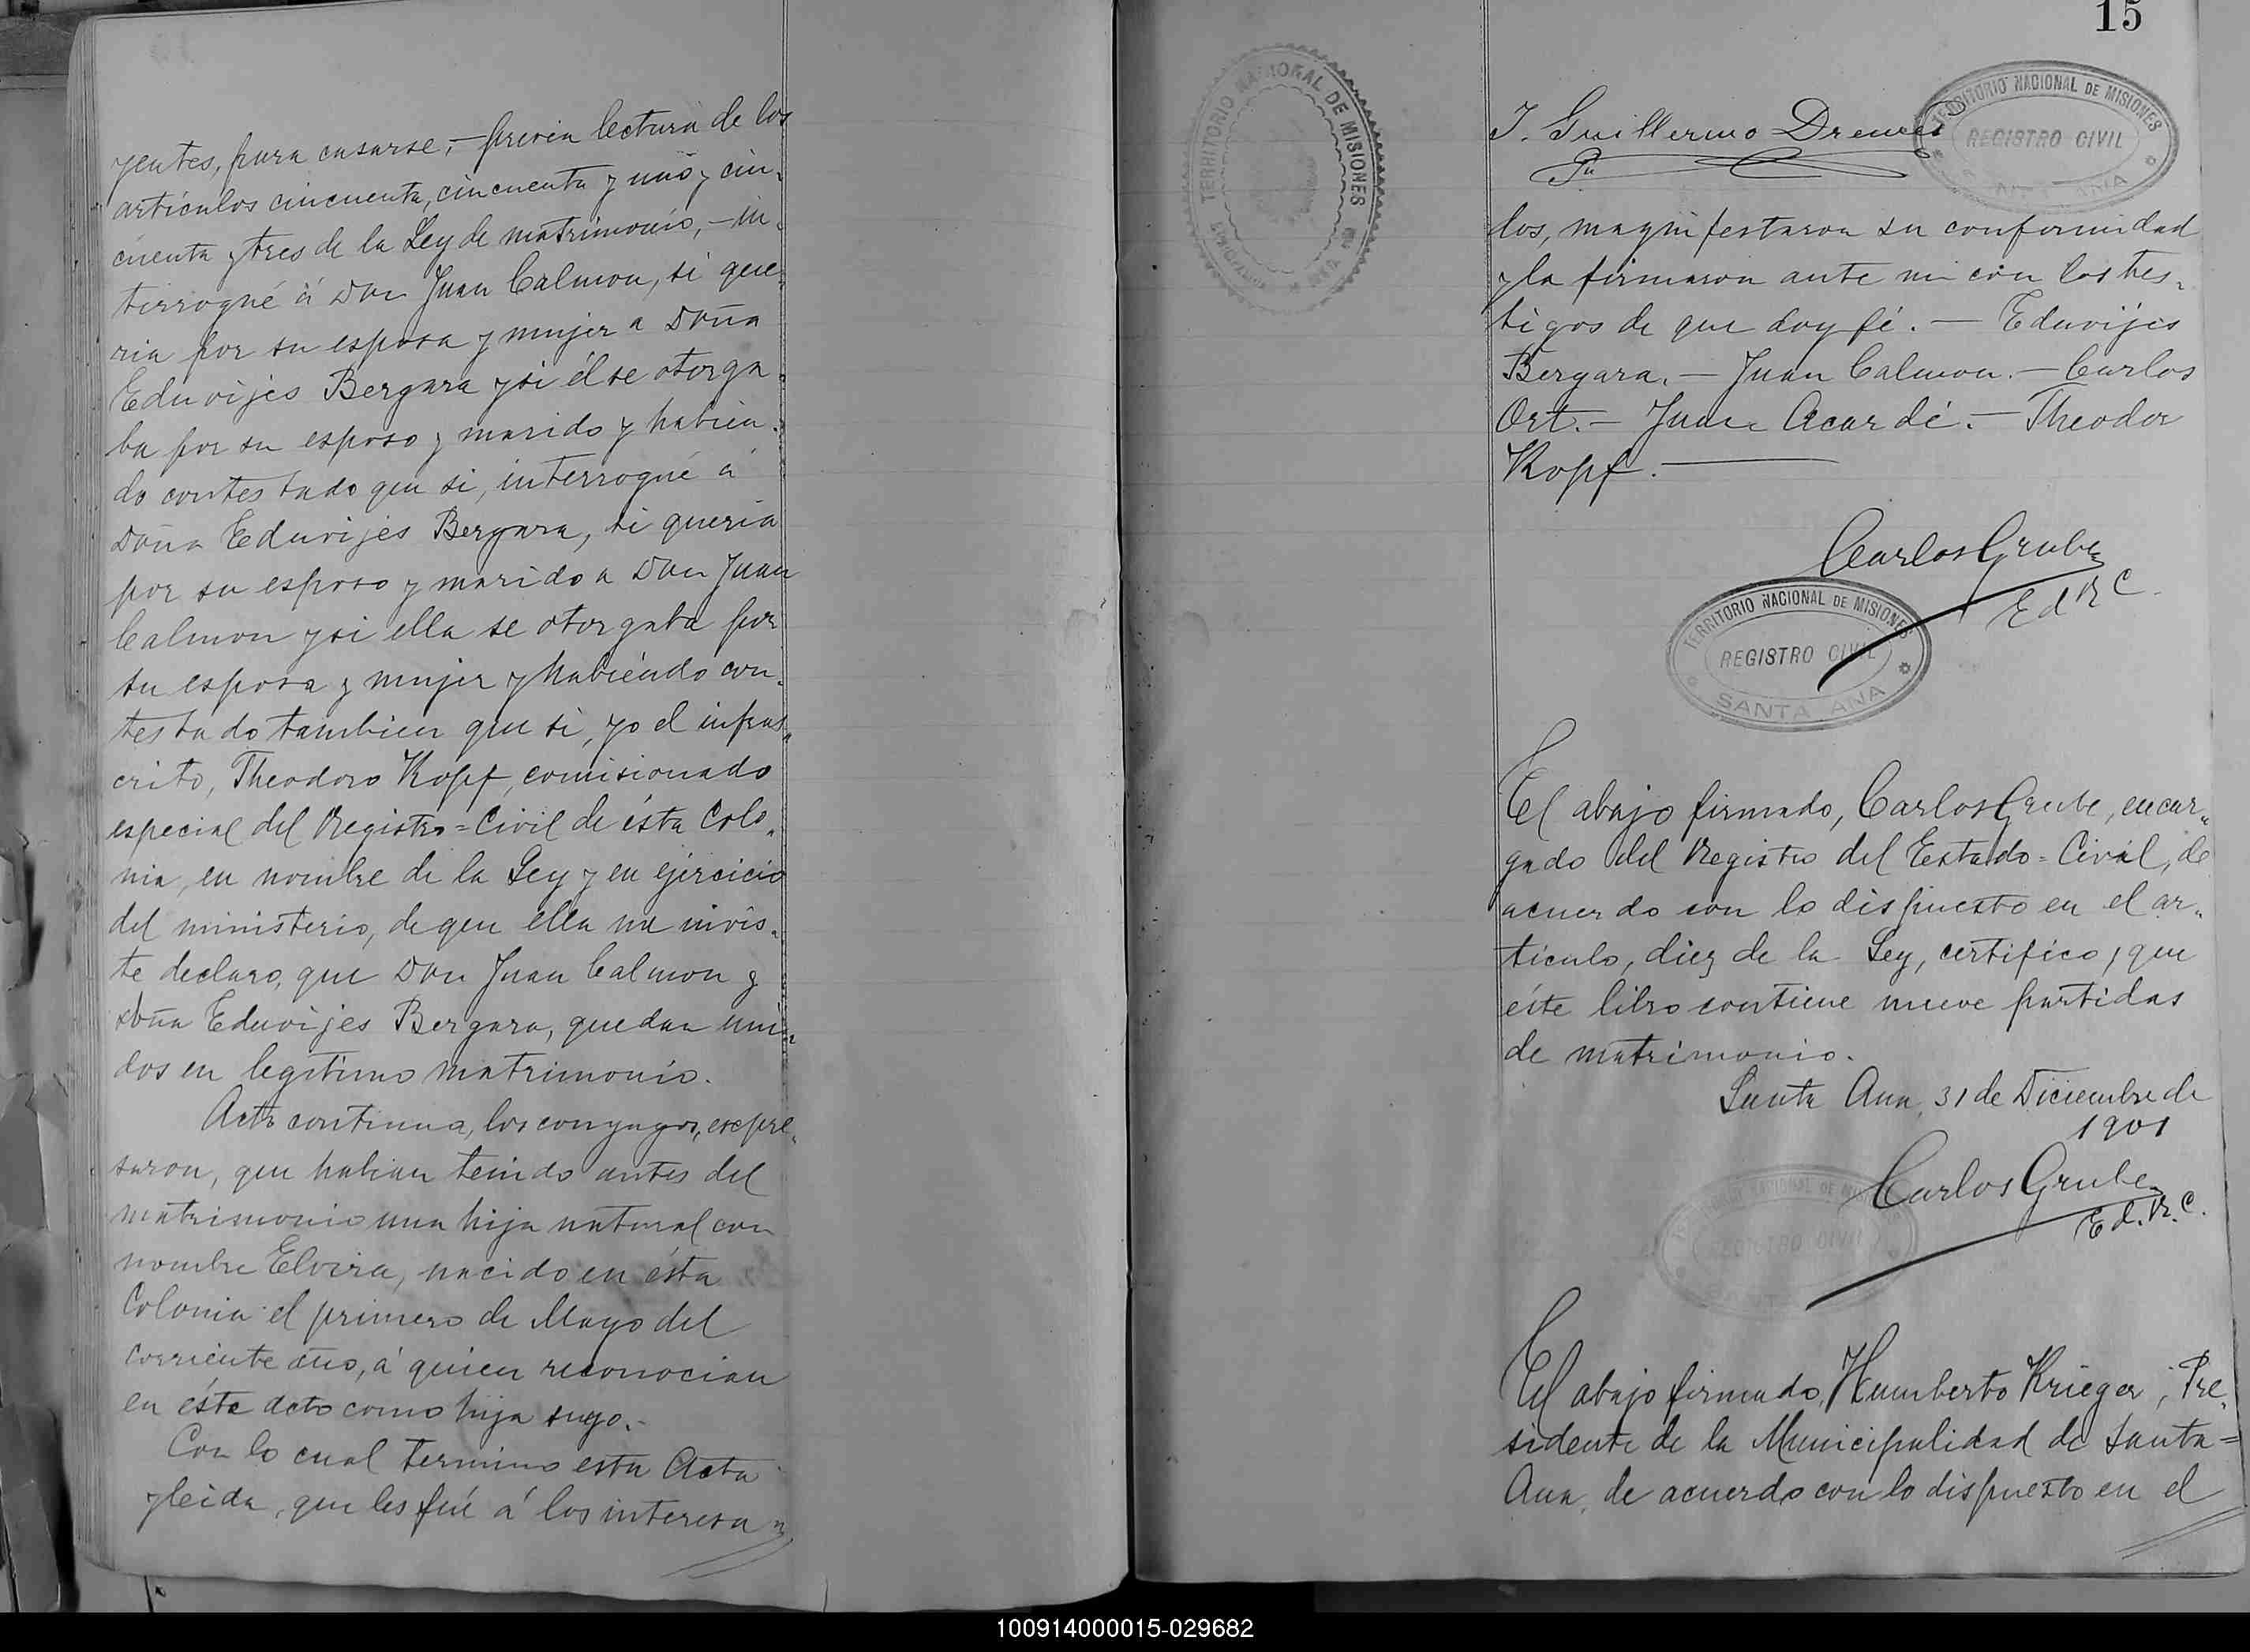 yentes, para casarse, – previa lectura de los
articulos cincuenta, cincuenta y uno y cin-
cuenta y tres de la Ley de matrimonio, – in-
terrogué á Don Juan Calmon, si que-
ria por su esposa y mujer a Doña
Eduvijes Bergara y si él se otorga-
ba por su esposo y marido y habien-
do contestado que si, interrogué á
Doña Eduvijes Bergara, si queria
por su esposo y marido a Don Juan
Calmon y si ella se otorgaba por
su esposa y mujer y habiéndo con-
testado tambien que si, yo el infras-
crito, Theodoro Kopf, comisionado
especial del Registro=Civil de ésta Colo-
nia, en nombre de la Ley y en ejercicio
del ministerio, de que ella me invis-
te declaro, que Don Juan Calmon y
doña Eduvijes Bergara, quedan uni-
dos en legitimo matrimonio.
Acto continua, los conyugos, escpre-
saron, que habian tenido antes del
matrimonio una hija natural con
nombre Elvira, nacido en ésta
Colonia el primero de Mayo del
corriente año, á quien reconocian
en éste acto como hija suyo.-
Con lo cual termino esta Acta
y leida, que les fué á los interesa=
15
TERRITORIO NACIONAL DE MISIONES
TERRITORIO NACIONAL DE MISIONES
REGISTRO CIVIL
SANTA ANA
J. Guillermo Drewes
dos, magnifestaron su conformidad
y la firmaron ante mi con los tes-
tigos de que doy fé. – Eduvijes
Bergara. – Juan Calmon. – Carlos
Ort. – Juan Acardé. – Theodor
Kopf.
Carlos Grube
E d R C.
TERRITORIO NACIONAL DE MISIONES
REGISTRO CIVIL
SANTA ANA
El abajo firmado, Carlos Grube, encar-
gado del Registro del Estado=Civil, de
acuerdo con lo dispuesto en el ar-
ticulo, diez de la Ley, certifico, que
éste libro contiene nueve partidas
de matrimonio.
Santa Ana, 31 de Diciembre de
1901
Carlos Grube
E d. R. C.
REGISTRO CIVIL
El abajo firmado, Humberto Krieger, Pre-
sidente de la Municipalidad de Santa=
Ana, de acuerdo con lo dispuesto en el
100914000015-029682